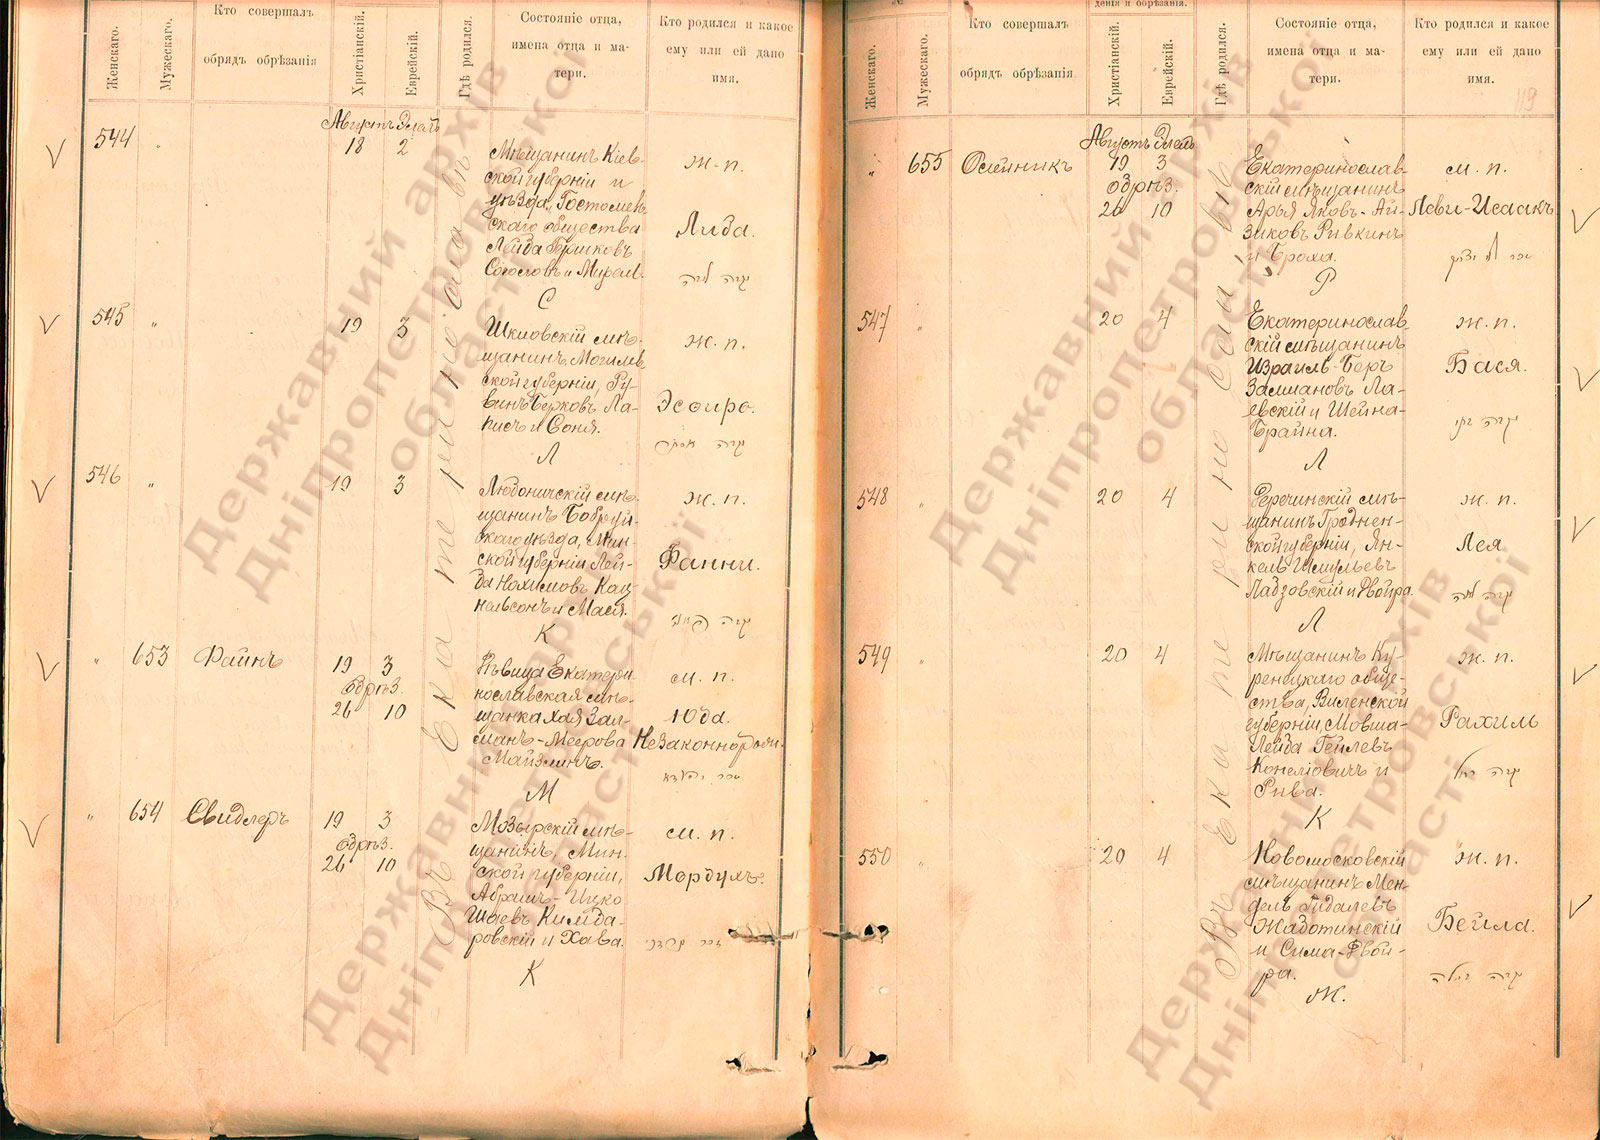 Женскаго.
Мужескаго.
Кто совершалъ
обрядъ обрѣзанія
Христіанскій.
Еврейскій.
Гдѣ родился.
Состояніе отца,
имена отца и ма-
тери.
Кто родился и какое
ему или ей дано
имя.
Августъ Элулъ
544 " 18 2
Мѣщанинъ Кіев-
ской губерніи и
уѣзда, Гостомель-
скаго общества
Лейда Гершковъ
и Мирель.
С
Ж. п.
Лида.
545 " 19 3
Шкловскій мѣ-
щанинъ, Могилев-
ской губерніи, Ру-
винъ Берковъ Ла-
писъ и Соня.
Л
Ж. п.
Эсфирь.
546 " 19 3
Любоничскій мѣ-
щанинъ Бобруй-
скаго уѣзда, Мин-
ской губерніи Лей-
ба Нохимовъ Кац-
нельсонъ и Мася.
К
Ж. п.
Фанни.
" 653 Файнъ 19 3
обрѣз.
26 10
Дѣвица Екатери-
нославская мѣ-
щанка Хая Зал-
манъ-Меерова
Майзлинъ.
М
м. п.
Юда.
Незаконнорожд.
" 654 Свидлеръ 19 3
обрѣз.
26 10
Мозырскій мѣ-
щанинъ, Мин-
ской губерніи,
Абрамъ-Ицко
Шаевъ Кимда-
ровскій и Хава.
К
м. п.
Мордухъ.
Въ Екатеринославѣ
Женскаго.
Мужескаго.
Кто совершалъ
обрядъ обрѣзанія
денія и обрѣзанія.
Христіанскій.
Еврейскій.
Гдѣ родился.
Состояніе отца,
имена отца и ма-
тери.
Кто родился и какое
ему или ей дано
имя.
119
Августъ Элулъ
" 655 Олейникъ 19 3
обрѣз.
26 10
Екатеринослав-
скій мѣщанинъ
Арья Яковъ-Ай-
зиковъ Ривкинъ
и Броха.
Р
м. п.
Леви-Исаакъ
547 " 20 4
Екатеринослав-
скій мѣщанинъ
Израиль-Беръ
Залмановъ Ла-
евскій и Шейна-
Брайна.
Л
Ж. п.
Бася.
548 " 20 4
мѣ-
щанинъ Гроднен-
ской губерніи, Ян-
кель Шмульевъ
Ладзовскій и Двойра.
Л
Ж. п.
Лея
549 " 20 4
Мѣщанинъ Ку-
ренецкаго обще-
ства, Виленской
губерніи, Мовша-
Лейба Гейлевъ
и
Рива.
К
Ж. п.
Рахиль
550 " 20 4
Новомосковскій
мѣщанинъ Мен-
дель Гидалевъ
Жаботинскій
и Сима-Двой-
ра.
Ж.
Ж. п.
Бейла.
Въ Екатеринославѣ
Державний архів
Дніпропетровської
області
Державний архів
Дніпропетровської
області
Державний архів
Дніпропетровської
області
Державний архів
Дніпропетровської
області